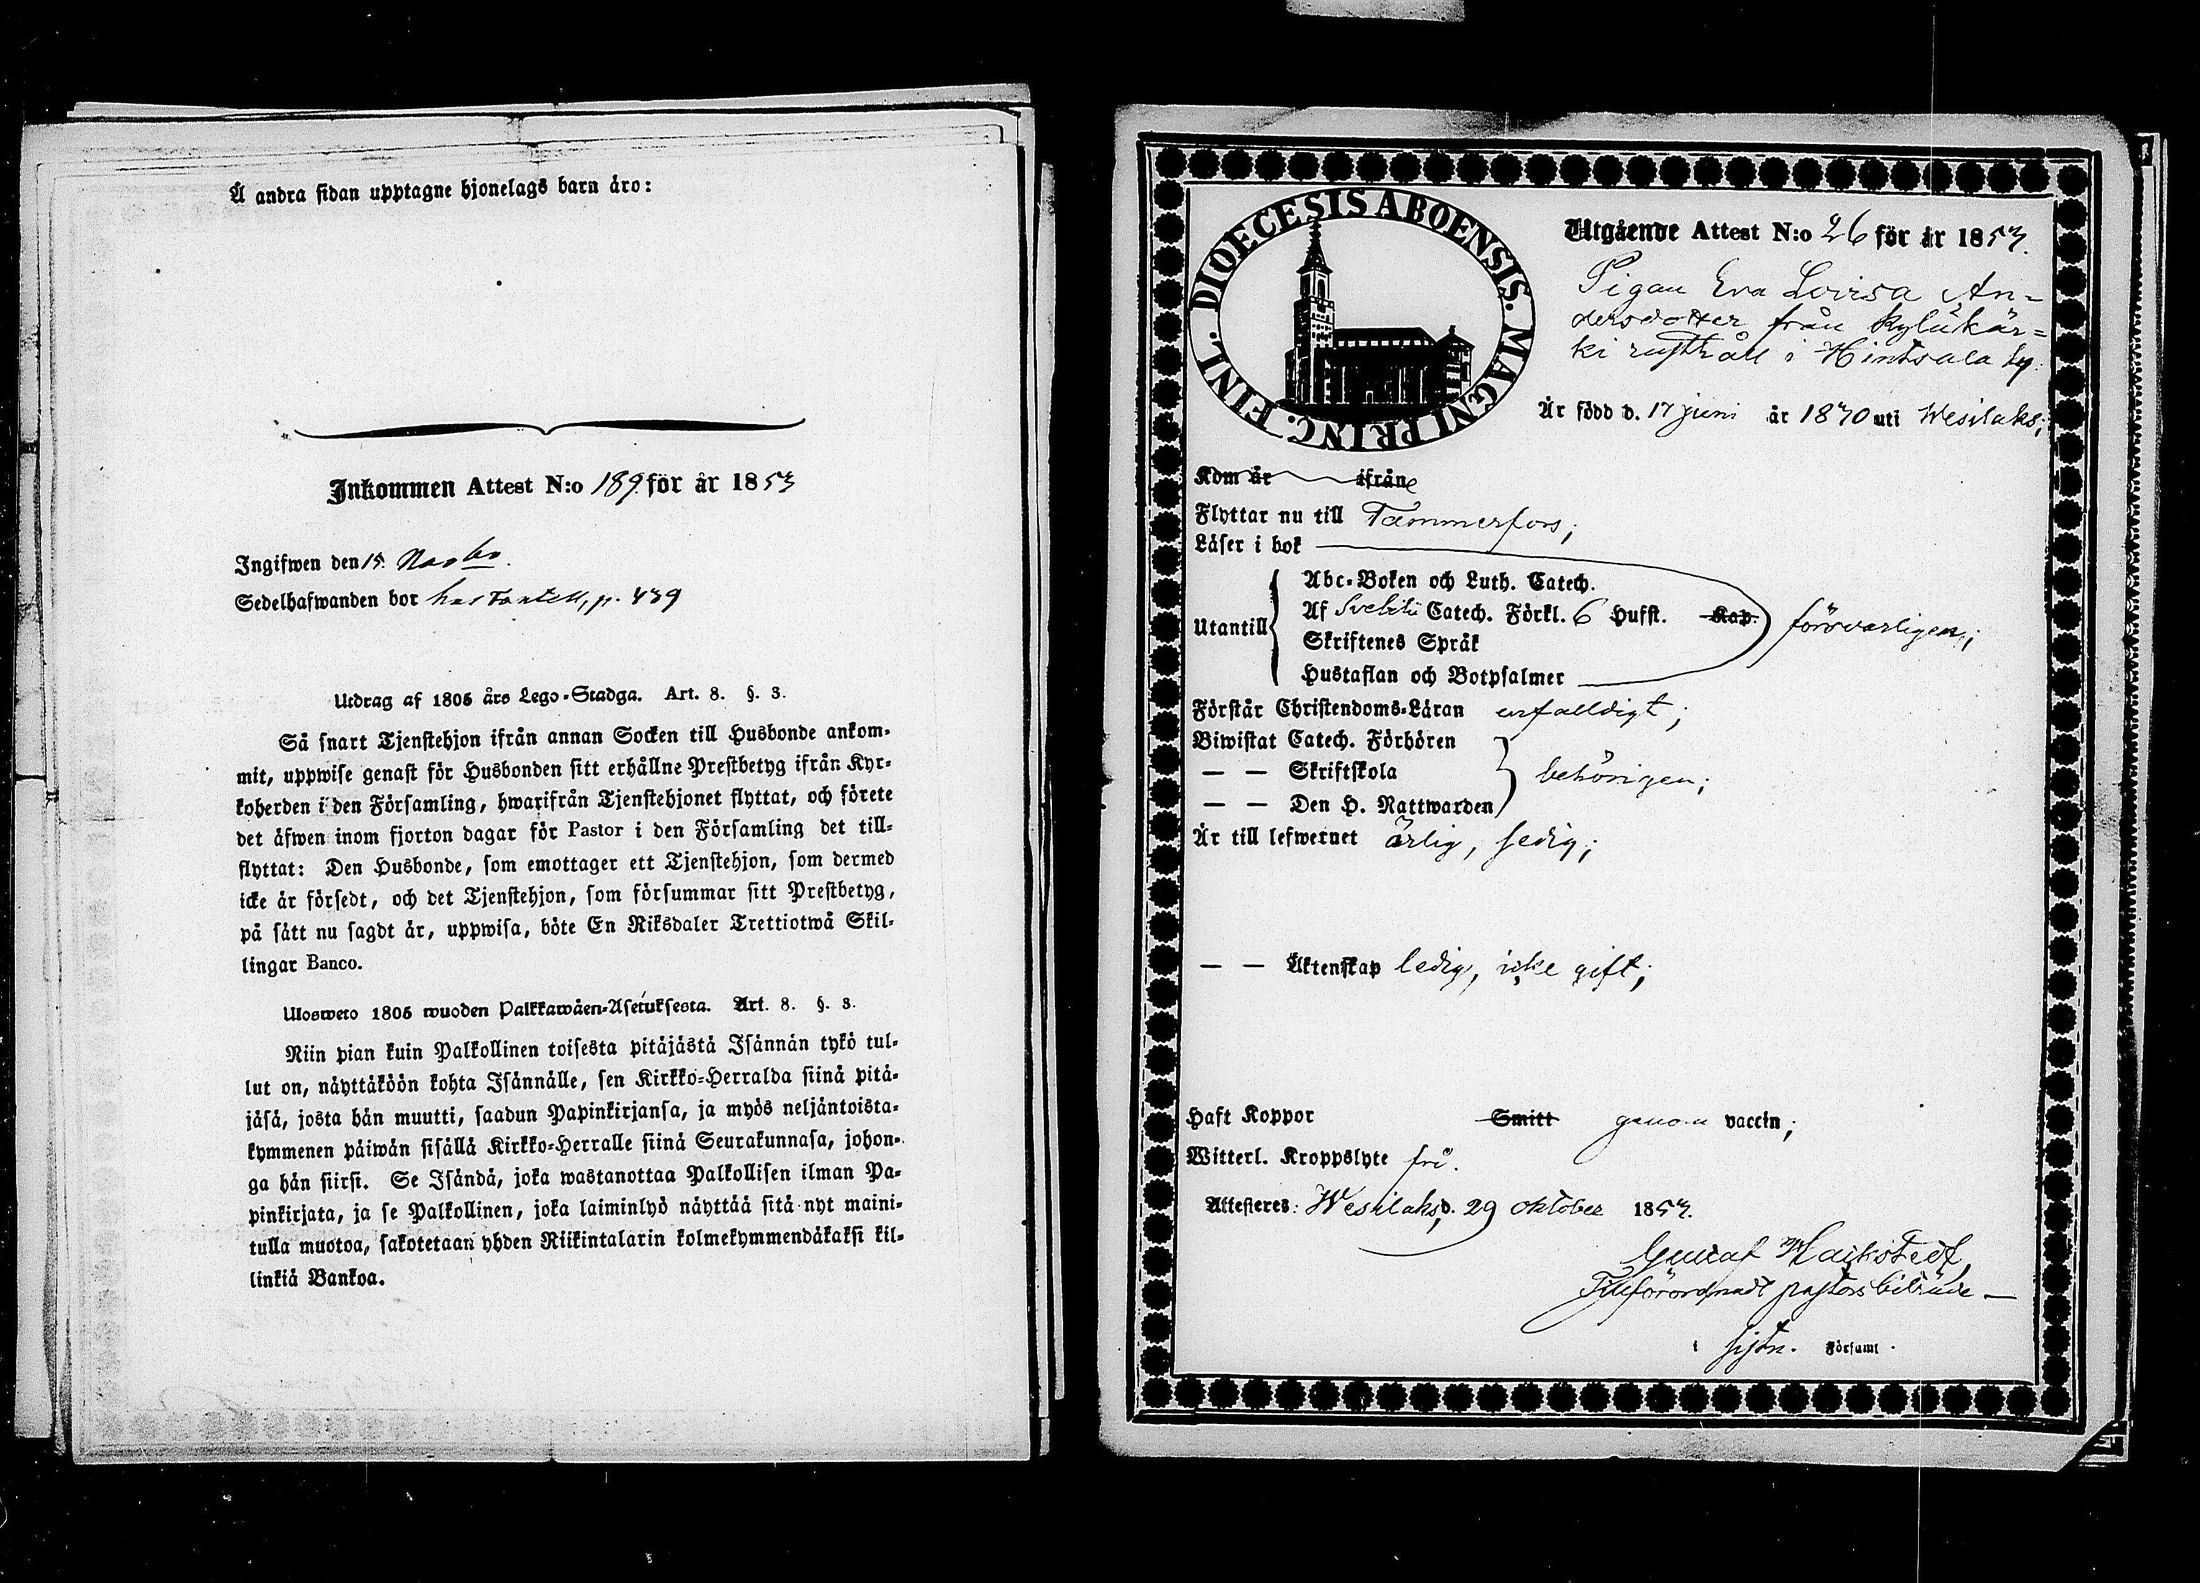 Å andra sidan upptagne hjonelags barn äro:
Inkommen Attest N:o 189 för år 1853
Ingifwen den 15. Novbr.
Sedelhafwanden bor hos p. 439
Utdrag af 1805 års Lego-Stadga. Art. 8. §. 3.
Så snart Tjenstehjon ifrån annan Socken till Husbonde ankom-
mit, uppwise genast för Husbonden sitt erhållne Prestbetyg ifrån Kyr-
koherden i den Församling, hwarifrån Tjenstehjonet flyttat, och förete
det äfwen inom fjorton dagar för Pastor i den Församling det till-
flyttat: Den Husbonde, som emottager ett Tjenstehjon, som dermed
icke är försedt, och det Tjenstehjon, som försummar sitt Prestbetyg,
på sätt nu sagdt är, uppwisa, böte En Riksdaler Trettiotwå Skil-
lingar Banco.
Ulosweto 1805 wuoden Palkkawäen-Asetuksesta. Art. 8. §. 3.
Niin pian kuin Palkollinen toisesta pitäjästä Isännän tykö tul-
lut on, näyttäköön kohta Isännälle, sen Kirkko-Herralda siinä pitä-
jäsä, josta hän muutti, saadun Papinkirjansa, ja myös neljäntoista-
kymmenen päiwän sisällä Kirkko-Herralle siinä Seurakunnasa, johon-
ga hän siirsi. Se Isändä, joka wastanottaa Palkollisen ilman Pa-
pinkirjata, ja se Palkollinen, joka laiminlyö näyttää sitä nyt maini-
tulla muotoa, sakotetaan yhden Riikintalarin kolmekymmendäkaksi kil-
linkiä Bankoa.
DIOECESIS ABOENSIS. MAGNI PRINC. FINL.
Utgående Attest N:o 26 för år 1853.
Pigan Eva Lovisa An-
dersdotter från Kylükär-
ki rusthåll i Hintsala by.
Är född d. 17 juni år 1830 uti Wesilaks;
Kom år ifrån
Flyttar nu till Tammerfors;
Läser i bok
Abc-Boken och Luth. Catech.
Utantill Af Svebilii Catech. Förkl. 6 Hufst. Kap. försvarligen;
Skriftenes Språk
Hustaflan och Botpsalmer
Förstår Christendoms-Läran enfalldigt;
Biwistat Catech. Förhören
— — Skriftskola behörigen;
— — Den H. Nattwarden
Är till lefwernet ärlig, sedig;
— — Äktenskap ledig, icke gift;
Haft Koppor Smitt genom vaccin;
Witterl. Kroppslyte fri.
Attesteres: Wesilaks, d. 29 oktober 1853.
Gustaf
Tillförordnadt pastors biträde
i Församl.